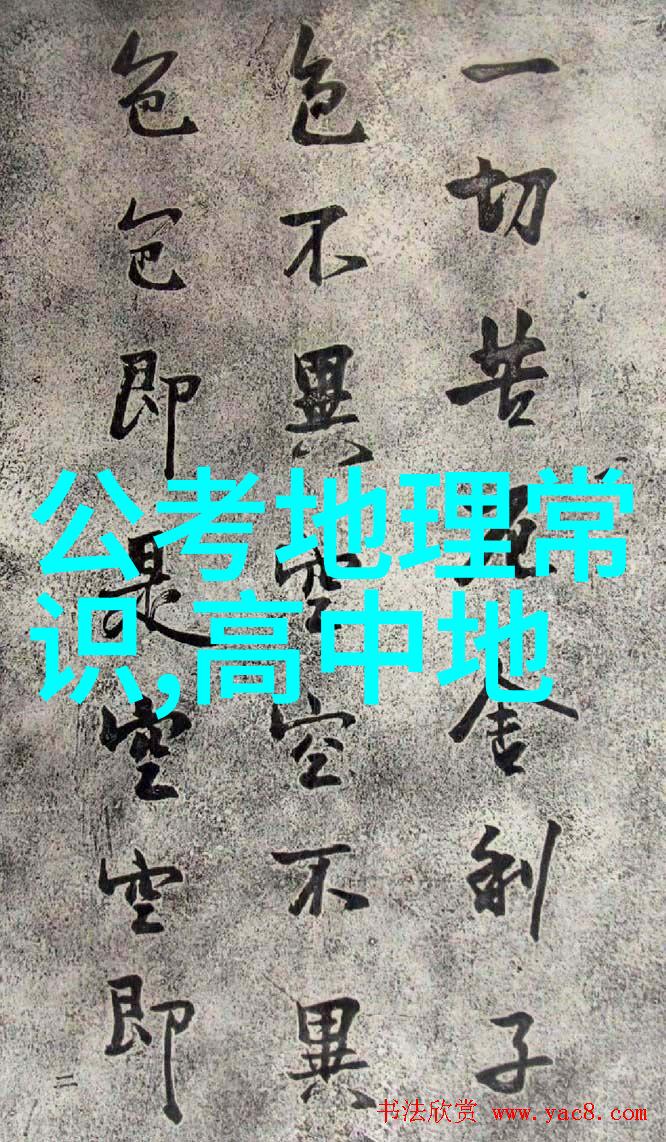 一切苦厄舍利子
色不異空空不異
色色即是空空即
二
公考地理常
识,高中地
书法欣赏 www.yac8.com